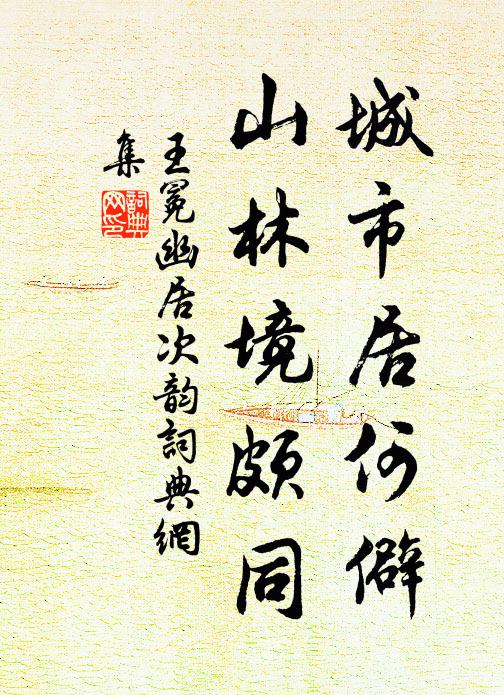 城市居何僻
山林境頗同
王冕幽居次韵詞典網
集
詞典
网印